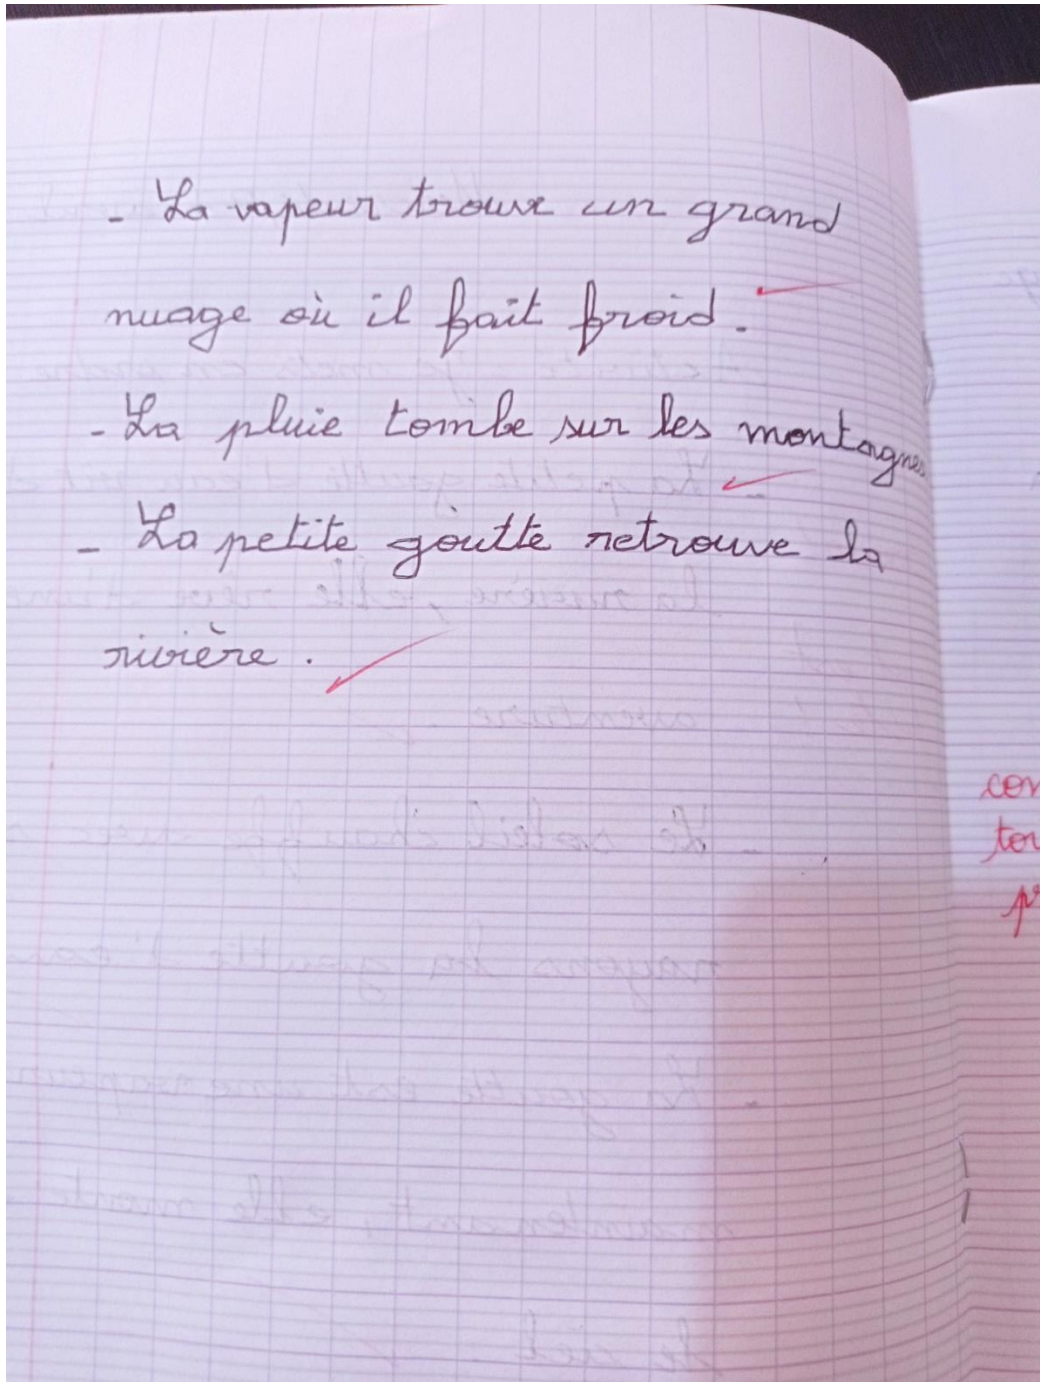 - La vapeur trouve un grand
nuage où il fait froid.
- La pluie tombe sur les montagnes
- La petite goutte retrouve la
rivière.